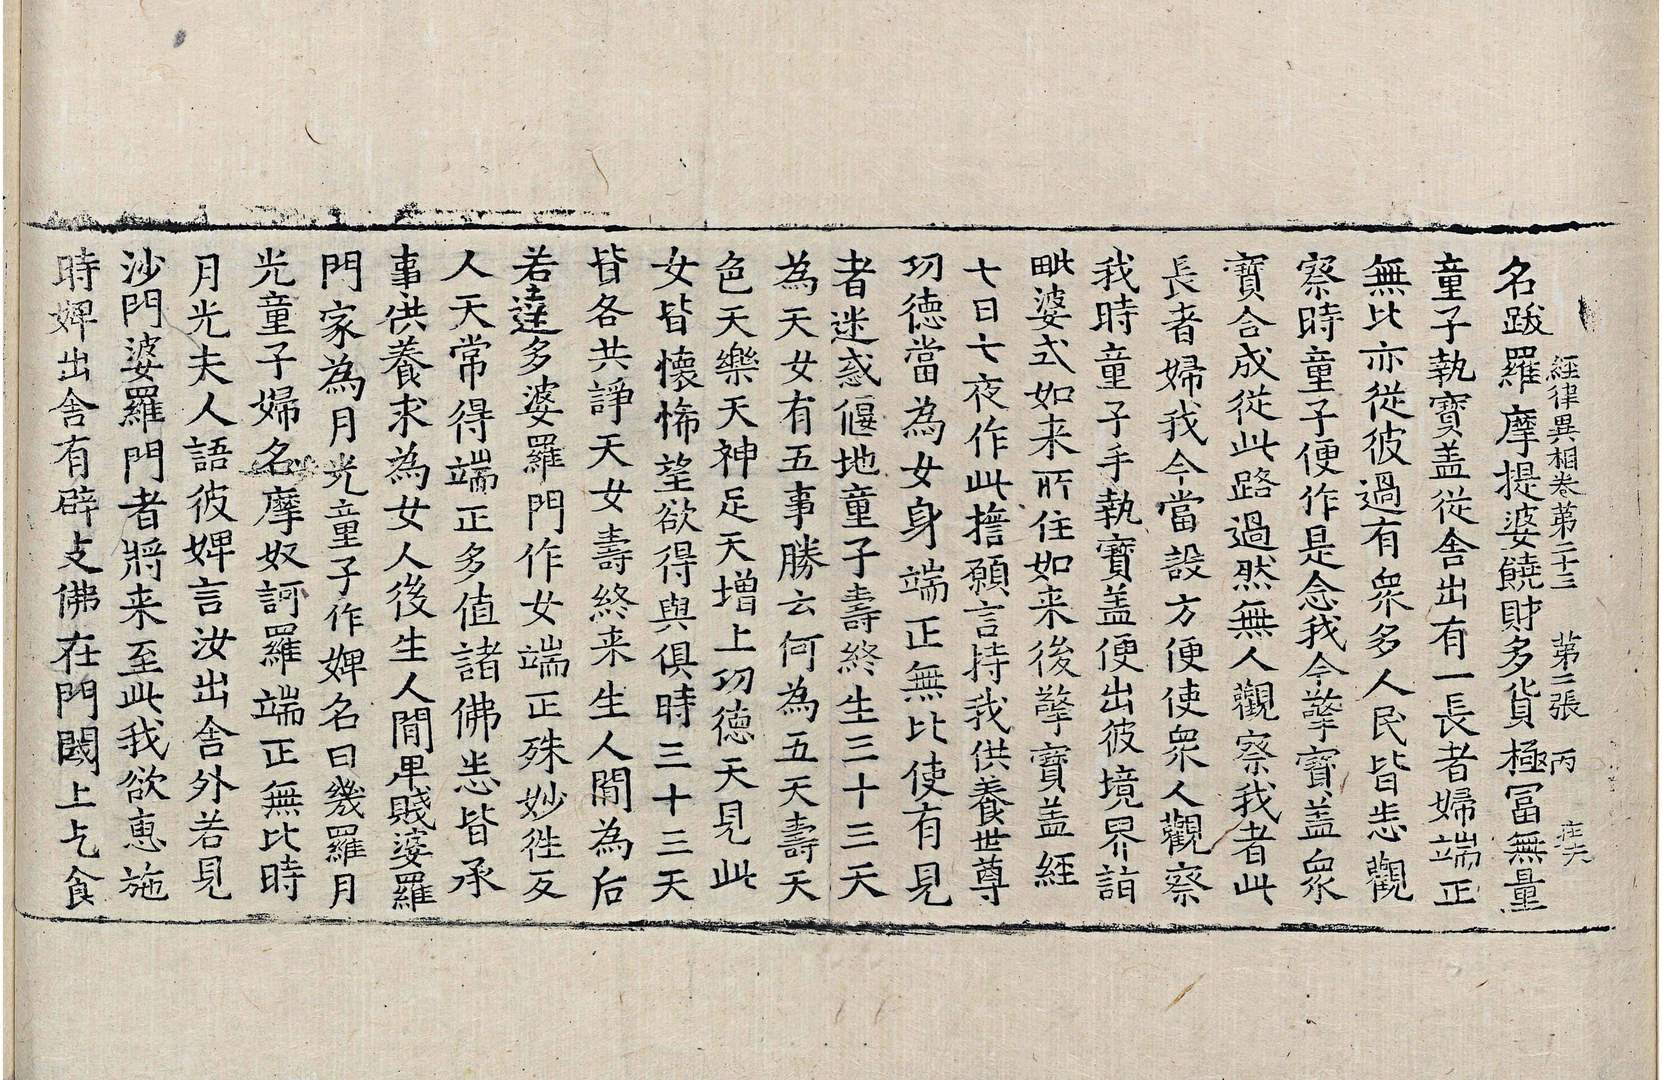 經律異相卷第二十三 第二張 丙
名跋羅摩提婆饒財多貨極冨無量
童子執寶盖從舍出有一長者婦端正
無比亦從彼過有衆多人民皆悉觀
察時童子便作是念我今擎寶盖衆
寶合成從此路過然無人觀察我者此
長者婦我今當設方便使衆人觀察
我時童子手執寶盖便出彼境界詣
毗婆式如来所住如来後擎寶盖經
七日七夜作此擔願言持我供養世尊
功德當為女身端正無比使有見
者迷惑偃地童子壽終生三十三天
為天女有五事勝云何為五天壽天
色天樂天神足天增上功德天見此
女皆懷悕望欲得與俱時三十三天
皆各共諍天女壽終来生人間為后
若達多婆羅門作女端正殊妙徃反
人天常得端正多值諸佛悉皆承
事供養求為女人後生人間卑賤婆羅
門家為月光童子作婢名曰幾羅月
光童子婦名摩奴訶羅端正無比時
月光夫人語彼婢言汝出舍外若見
沙門婆羅門者將来至此我欲惠施
時婢出舍有辟支佛在門閫上乞食